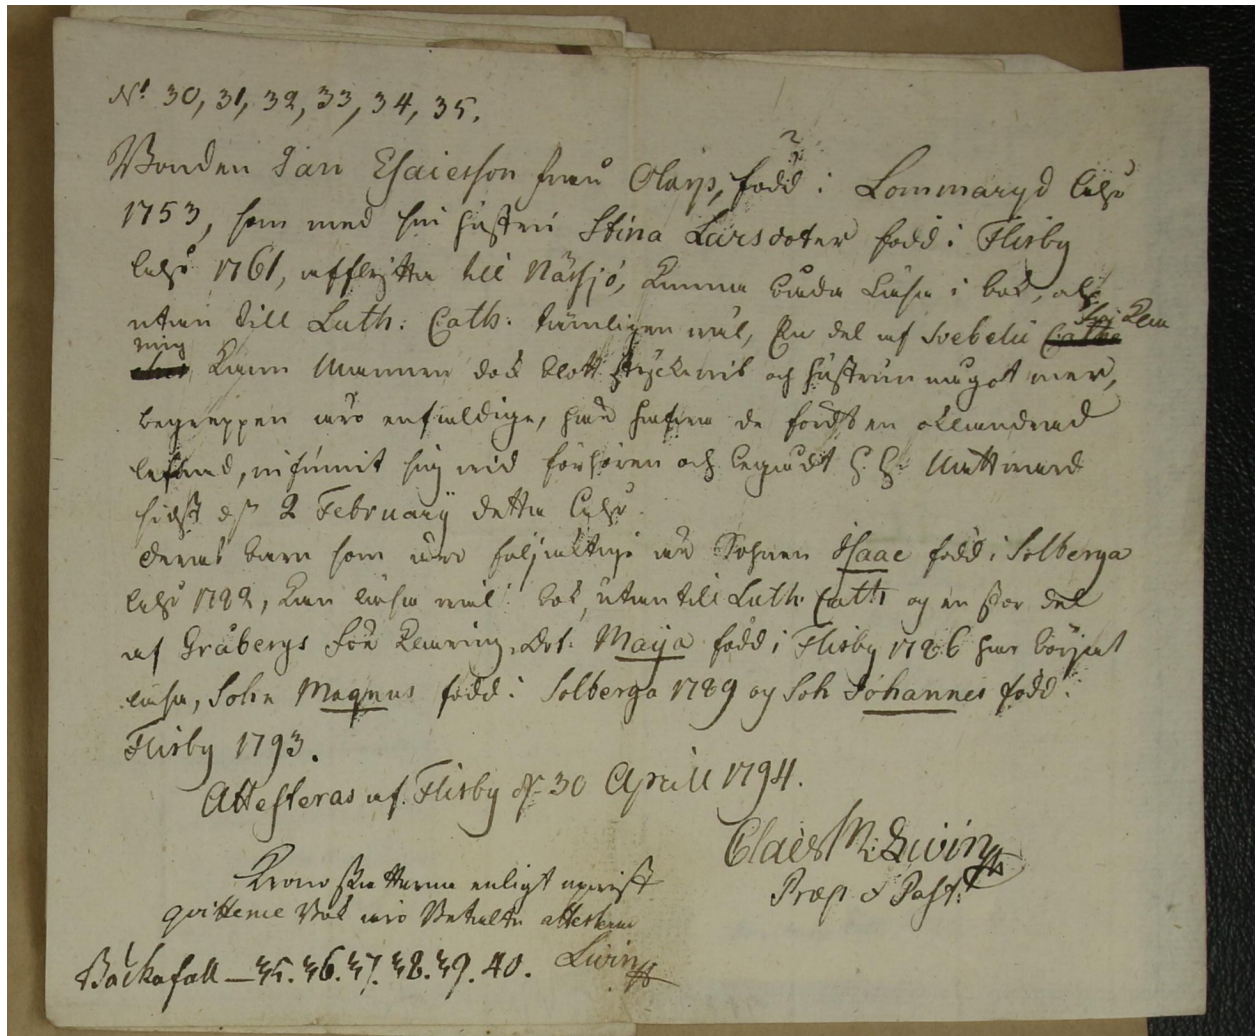 N.º 30, 31, 32, 33, 34, 35.
Bonden Jan Esaiesson från Olarp, född i Lommaryd åhr
1753, som med sin hustru Stina Larsdoter född i Flisby
åhr 1761, afflytta till Näsjö, kunna båda läsa i bok, och
utan till Luth: Cath: tämligen wäl, En del af Svebelii För kla
ring kann Mannen dock blott styckevis och hustrun något mer,
begreppen äro enfaldige, har hafva de fördt en okland rad
lefnad, infunnit sig vid förhören och begådt H. H. Nattward
sidst d 2 February detta åhr.
Deras barn som äro följaktige äro Sohnen Isaac född i Solberga
åhr 1782, kan läsa wäl i bok, utan till Luth. Cath og en stor del
af Gråbergs För klaring, Dot: Maija född i Flisby 1786 har börjat
läsa, Sohn Magnus född i Solberga 1789 og Soh Johannes född i
Flisby 1793.
Attesteras af Flisby d 30 Aprill 1794.
Claes M: Livin
Præp & Past:
Krono skatterna enligt upvist
qvittence Bok äro Betalte attesterar
Livin
Bäckafall — 35. 36. 37. 38. 39. 40.